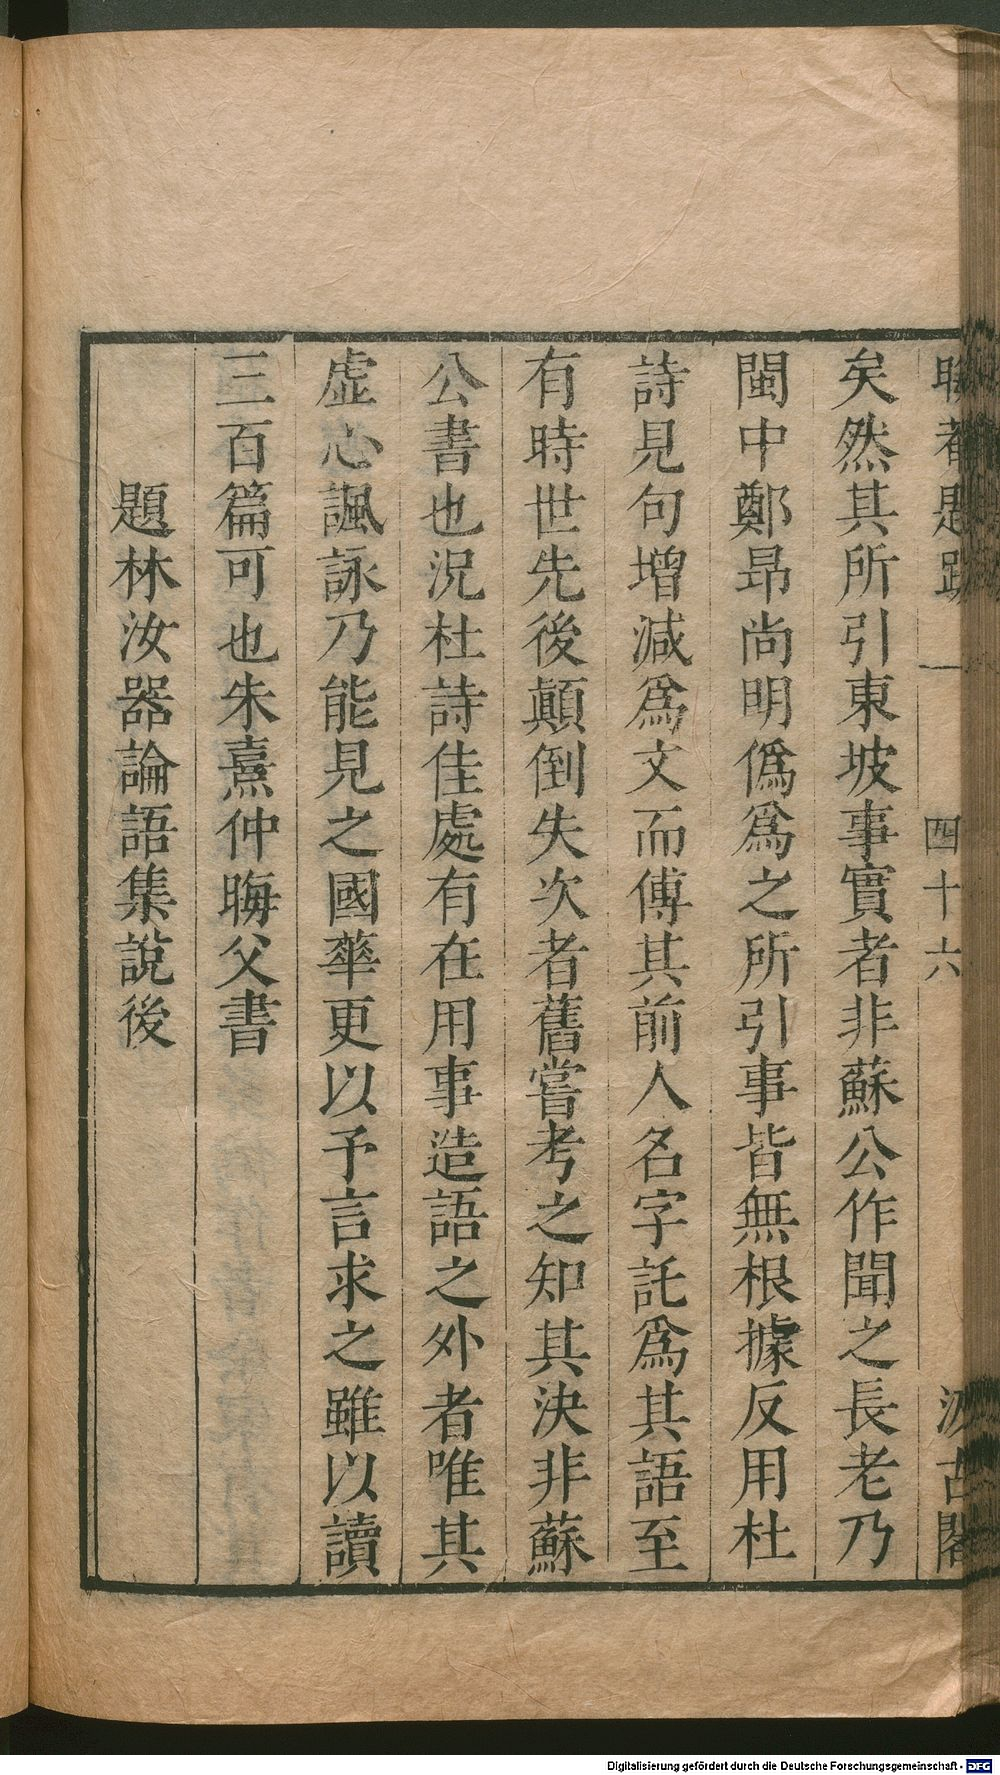 晦菴題跋 一 四十六 汲古閣
矣然其所引東坡事實者非蘇公作聞之長老乃
閩中鄭昂尚明僞爲之所引事皆無根據反用杜
詩見句增減爲文而傅其前人名字託爲其語至
有時世先後顛倒失次者舊嘗考之知其決非蘇
公書也況杜詩佳處有在用事造語之外者唯其
虛心諷詠乃能見之國華更以予言求之雖以讀
三百篇可也朱熹仲晦父書
題林汝器論語集說後
Digitalisierung gefördert durch die Deutsche Forschungsgemeinschaft - DFG